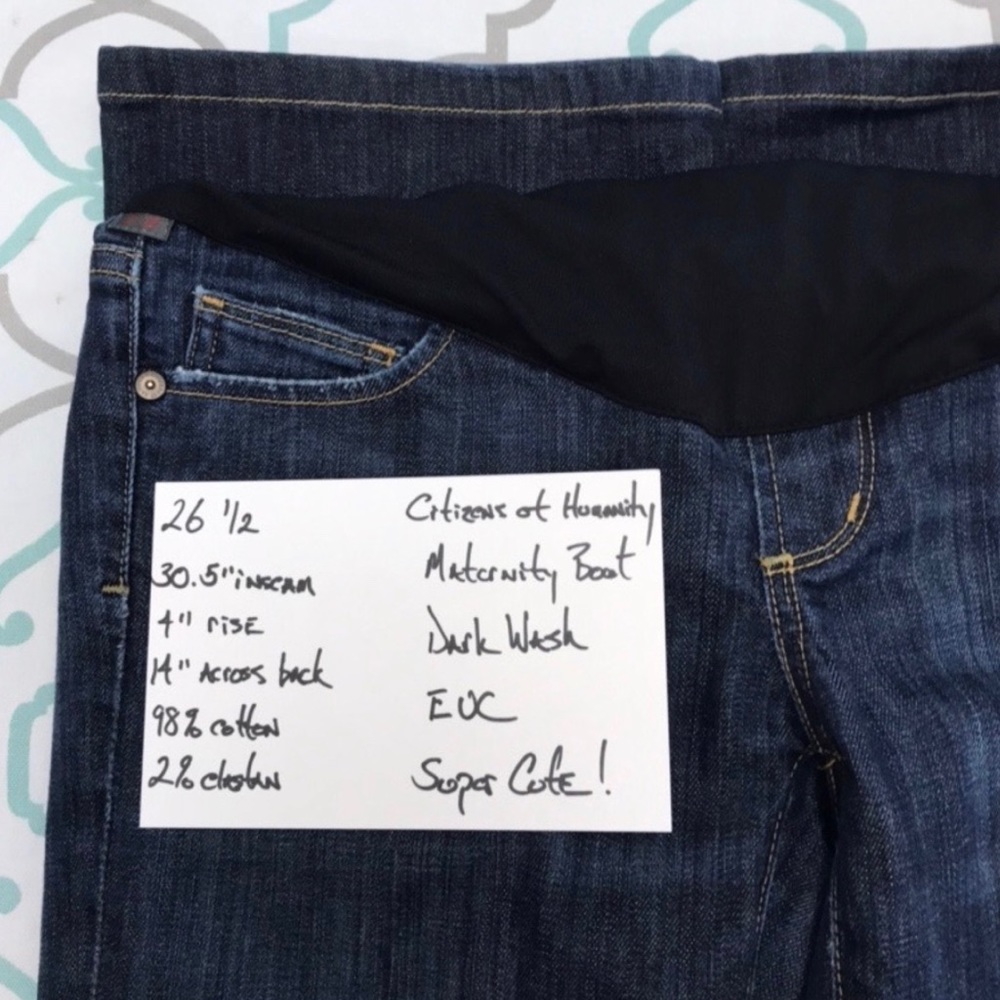 26 1/2
30.5" inseam
4" rise
14" Across back
98% cotton
2% elastan
Citizens of Humanity
Maternity Boot
Dark Wash
EUC
Super Cute!